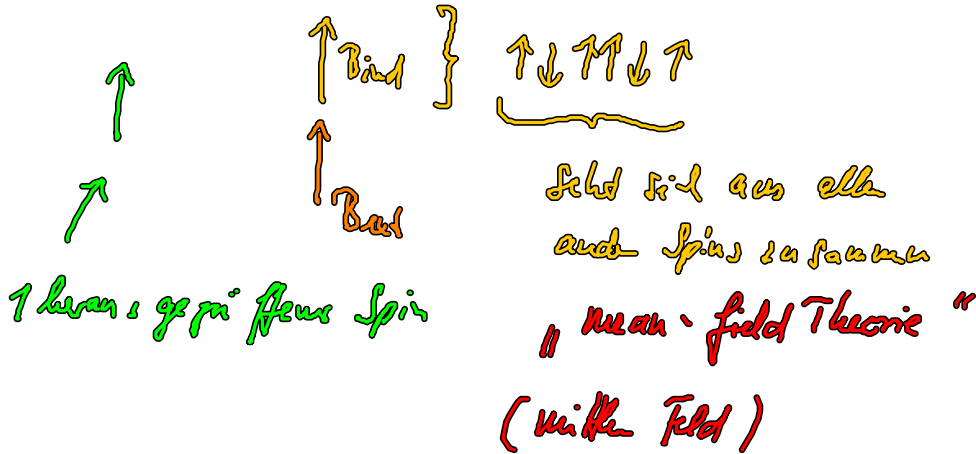 B ind
B ext
setzt sich aus allen
anderen Spins zusammen
1 herausgegriffener Spin
„mean-field Theorie“
(mittleres Feld)